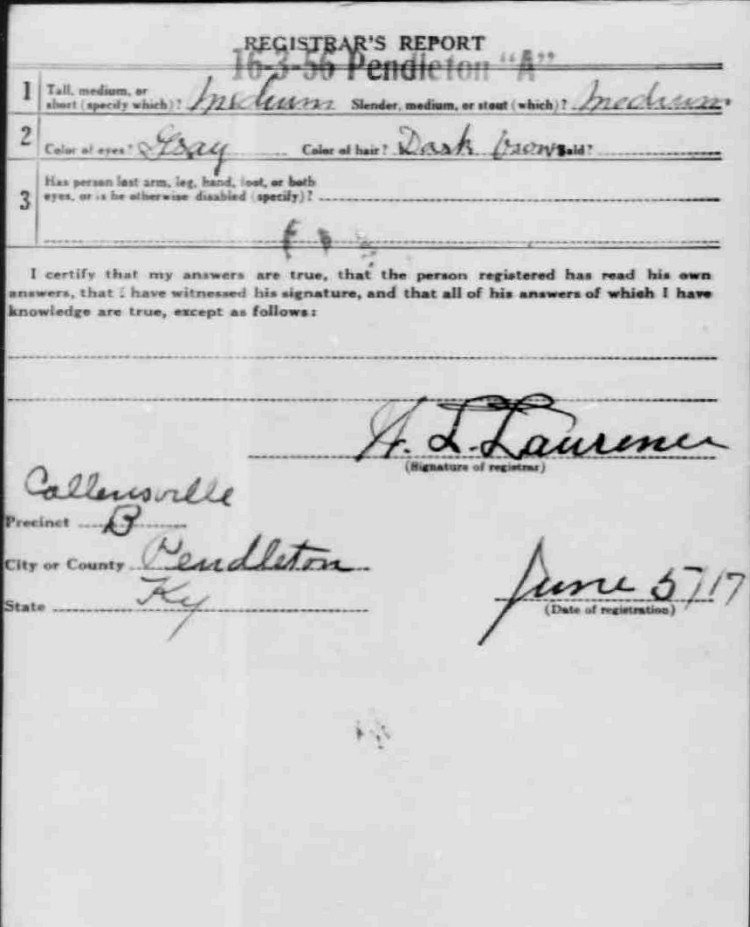 REGISTRAR'S REPORT
16-3-56 Pendleton "A"
1 Tall, medium, or short (specify which)? Medium Slender, medium, or stout (which)? Medium
2 Color of eyes? Gray Color of hair? Dark brown Bald?
3 Has person lost arm, leg, hand, foot, or both
eyes, or is he otherwise disabled (specify)?
I certify that my answers are true, that the person registered has read his own
answers, that I have witnessed his signature, and that all of his answers of which I have
knowledge are true, except as follows:
L. Laurence
(Signature of registrar)
Callensville
Precinct B
City or County Pendleton
State Ky
June 5/17
(Date of registration)